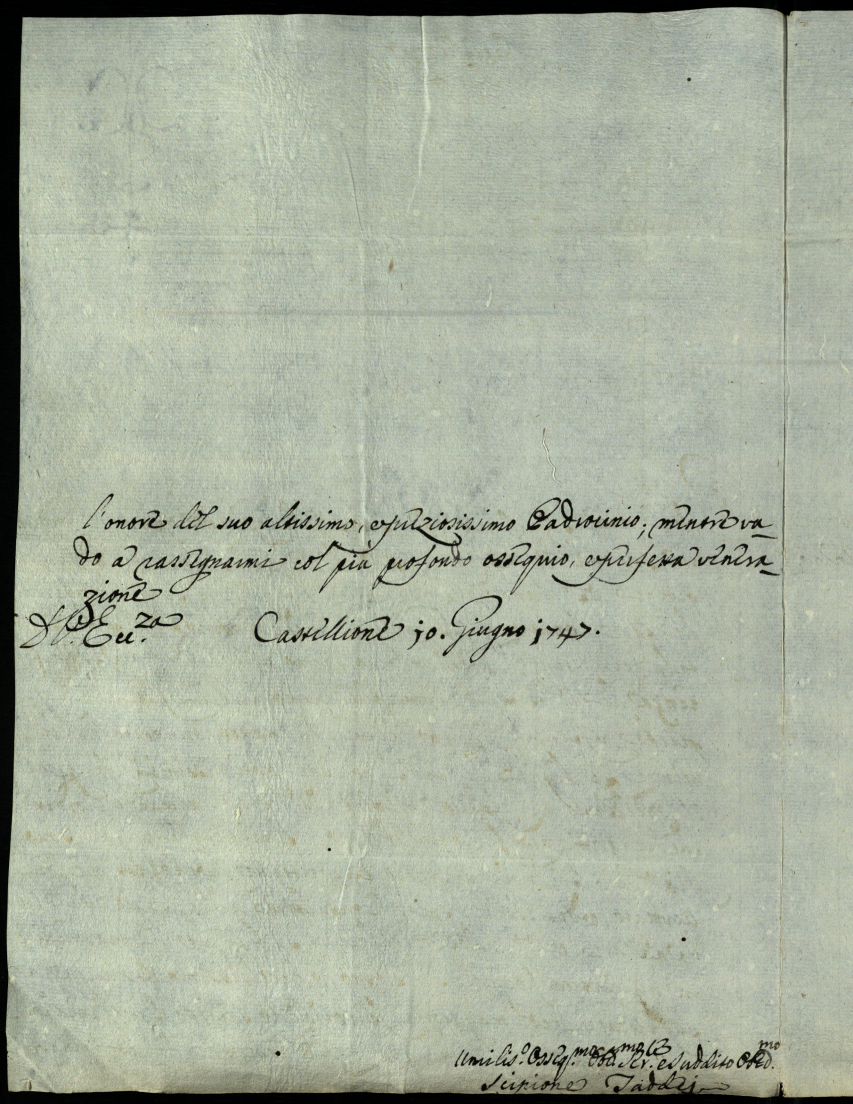 l'onore del suo altissimo, e preziosissimo Padrocinio; mentre va-
do à rassegnarmi col più profondo ossequio, e perfetta venera-
zione
D. V. Ecc.za Castellione 10. Giugno 1747.
Umilis.o Osseq.mo Ser. e Suddito Obed.mo
Scipione Taddei